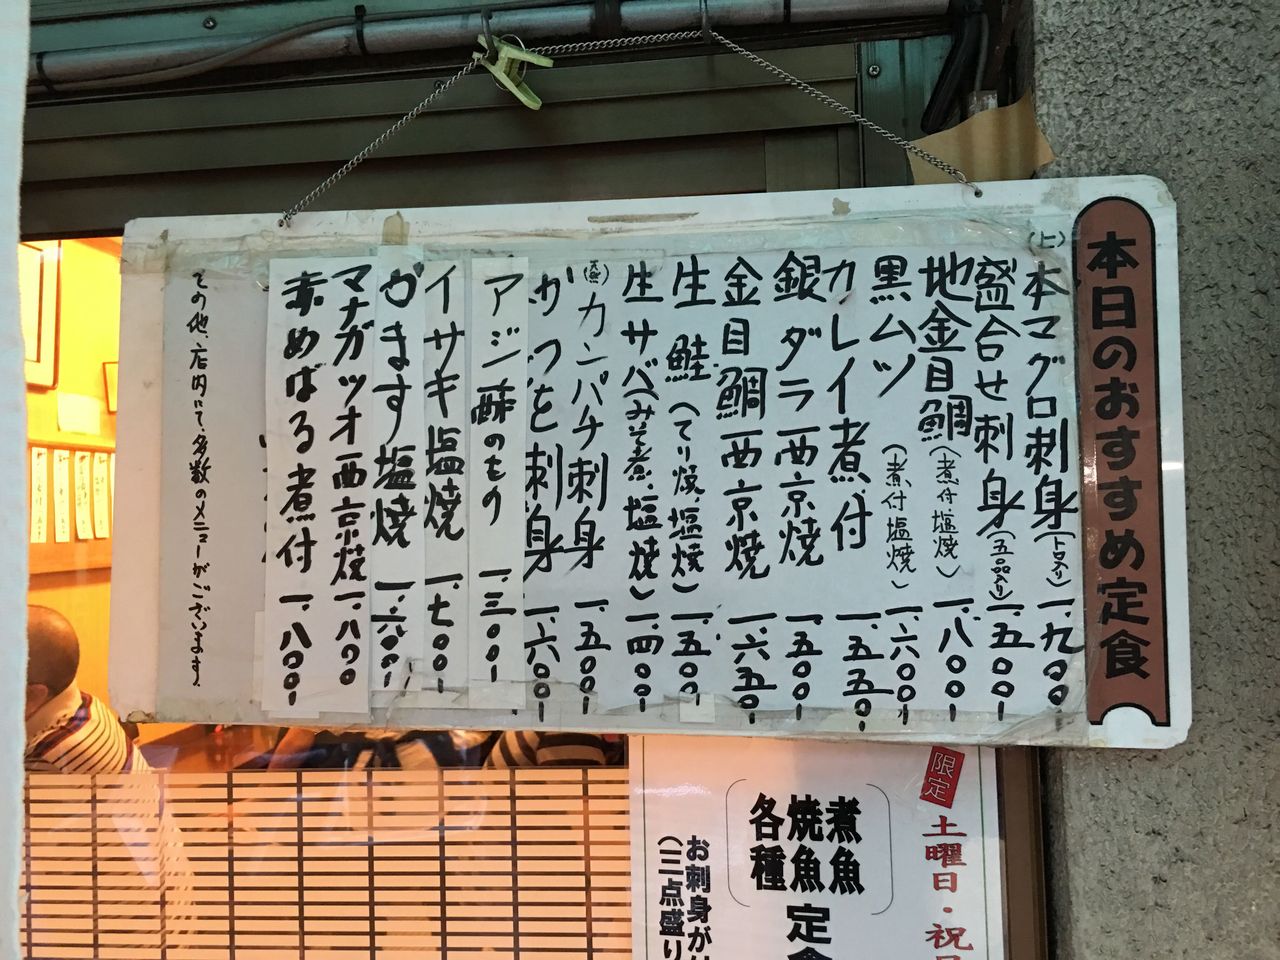 本日のおすすめ定食
(上)本マグロ刺身(トロ入り)一、九〇〇
盛合せ刺身(五品入り)一、五〇〇-
地金目鯛(煮付塩焼)一、八〇〇-
黒ムツ(煮付塩焼)一、六〇〇-
カレイ煮付 一、五五〇-
銀ダラ西京焼 一、五〇〇-
金目鯛西京焼 一、六五〇-
生鮭(てり焼、塩焼)一、五〇〇-
生サバ(みそ煮、塩焼)一、四〇〇-
カンパチ刺身 一、五〇〇-
かつを刺身 一、六〇〇-
アジ酢のもの 一、三〇〇-
イサキ塩焼 一、七〇〇-
かます塩焼 一、六〇〇-
マナガツオ西京焼 一、八〇〇
赤めばる煮付 一、八〇〇-
その他、店内にて、多数のメニューがございます。
限定
土曜日・祝
煮魚
焼魚
各種
定
お刺身が
(三点盛り